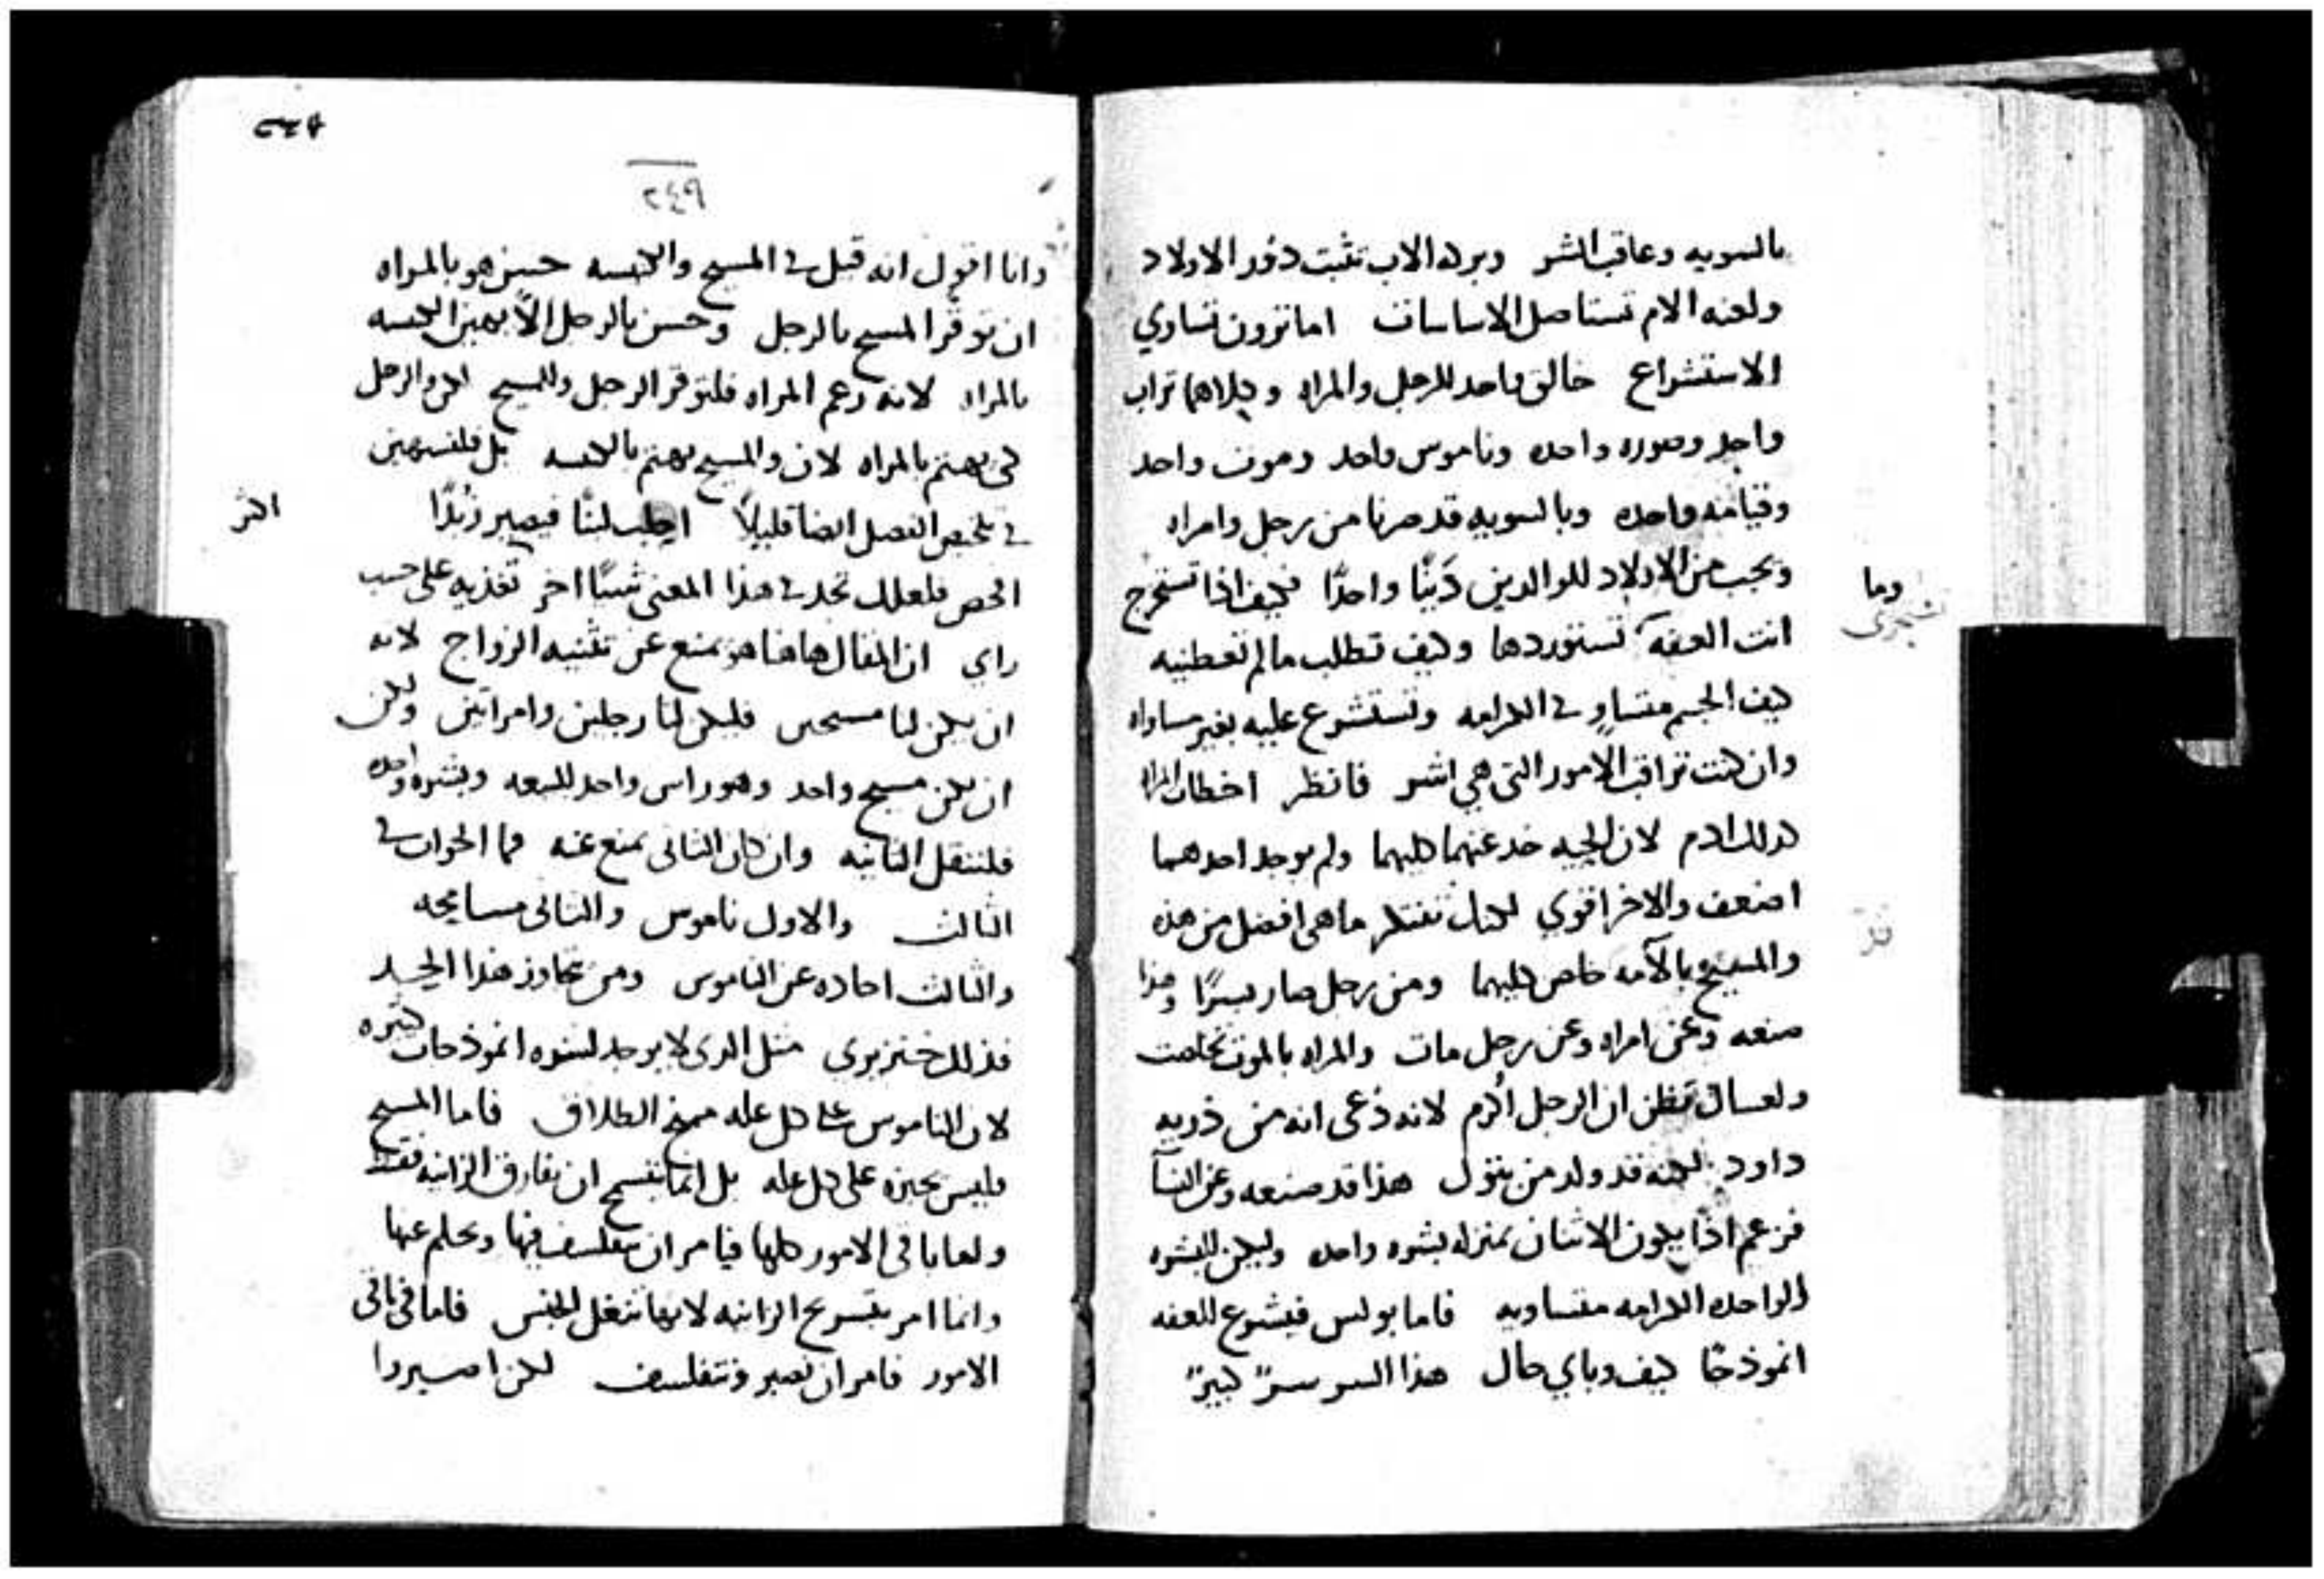 بالسويه وعاقب الشر وبركه الاب تثبت دور الاولاد
ولعنه الام تستاصل الاساسات اما ترون تساوي
الاستشراع خالق واحد للرجل والمراه وكلاهما تراب
واحد وصوره واحده وناموس واحد وموت واحد
وقيامه واحده وبالسويه قد صرنا من رجل وامراه
ويجب من الاولاد للوالدين دَينًا واحدًا فكيف اذا تستخرج
وما
انت العفه تستوردها وكيف تطلب مالم تعطيه
كيف الجسم متساوٍ في الكرامه وتستشرع عليه بغير مساواه
وان كنت تراقب الامور التي هي اشر فانظر اخطات المراه
كذلك ادم لان الحيه خدعتهما كليهما ولم يوجد احدهما
اضعف والاخر اقوي لكنك تفتكر ما هي افضل من هذه
والمسيح بالآمه خلص كليهما ومن رجل صار بسرًا وهذا
صنعه وعن امراه وعن رجل مات والمراه بالموت تخلصت
ولعساك تظن ان الرجل اكرم لانه دُعى انه من ذريه
داود لكنه قد ولد من بتول هذا قد صنعه وعن النسآ
فزعم اذًا يكون الاثنان بمنزله بشره واحده وليكن للبشره
الواحده الكرامه متساويه فاما بولس فيشرع للعفه
انموذجًا كيف وباي حال هذا السر سرٌ كبيرٌ
٢٤٩
وانا اقول انه قيل في المسيح والكنيسه حسن هو بالمراه
ان توقر المسيح بالرجل وحسن بالرجل الّا يهين الكنيسه
بالمراه لانه زعم المراه فلتوقر الرجل والمسيح لكن والرجل
لكى يهتم بالمراه لان والمسيح يهتم بالكنيسه بل فلنستهين
في تلخيص الفصل ايضا قليلاً احلب لبنًا فيصير زُبدًا
افحص فلعلك تجد في هذا المعنى شيئًا اخر تغذيه على حسب
راي ان المقال هاهنا هو يمنع عن تثنيه الزواج لانه
ان يكن لنا مسيحين فليكن لنا رجلين وامراتين ولكن
ان يكن مسيح واحد وهو راس واحد للبيعه وبشره واحده
فلننتقل الثانيه وان كان الثانى يمنع عنه فما الجواب في
الثالث والاول ناموس والثانى مسامحه
والثالث احاده عن الناموس ومن تجاوز هذا الحد
فذلك خنزيري مثل الدى لا يوجد لشره انموذجات كثيره
لان الناموس على كل عله يمنح الطلاق فاما المسيح
فليس يجيزه على كل عله بل انما يفسح ان تفارق الزانيه فقط
ولعا باقى الامور كلها فيامر ان يتفلسف فيها ويحلم عنها
وانما امر بتسريح الزانيه لانها تنغل الجنس فاما فى باقى
الامور فامر ان نصبر ونتفلسف لكن اصبروا